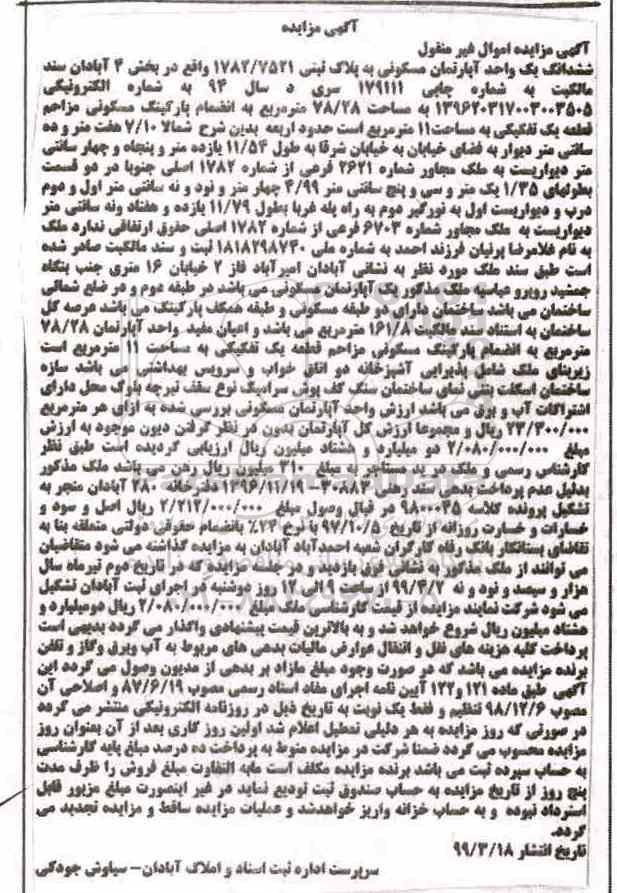 آگهی مزایده
آگهی مزایده اموال غیر منقول
ششدانگ یک واحد آپارتمان مسکونی به پلاک ثبتی ۱۷۸۲/۷۵۲۱ واقع در بخش ۴ آبادان سند
مالکیت به شماره چاپی ۱۷۹۱۱۱ سری د سال ۹۴ به شماره الکترونیکی
۱۳۹۶۲۰۳۱۷۰۰۳۰۰۳۵۰۵ به مساحت ۷۸/۲۸ مترمربع به انضمام پارکینگ مسکونی مزاحم
قطعه یک تفکیکی به مساحت۱۱ مترمربع است حدود اربعه بدین شرح شمالا ۷/۱۰ هفت متر و ده
سانتی متر دیوار به فضای خیابان به خیابان شرقا به طول ۱۱/۵۴ یازده متر و پنجاه و چهار سانتی
متر دیواریست به ملک مجاور شماره ۲۶۲۱ فرعی از شماره ۱۷۸۲ اصلی جنوبا در دو قسمت
بطولهای ۱/۳۵ یک متر و سی و پنج سانتی متر ۴/۹۹ چهار متر و نود و نه سانتی متر اول و دوم
درب و دیواریست اول به نورگیر دوم به راه پله غربا بطول ۱۱/۷۹ یازده و هفتاد ونه سانتی متر
دیواریست به ملک مجاور شماره ۶۷۰۳ فرعی از شماره ۱۷۸۲ اصلی حقوق ارتفاقی ندارد ملک
به نام غلامرضا پرنیان فرزند احمد به شماره ملی ۱۸۱۸۲۹۸۷۳۰ ثبت و سند مالکیت صادر شده
است طبق سند ملک مورد نظر به نشانی آبادان امیرآباد فاز ۲ خیابان ۱۶ متری جنب بنگاه
جمشید روبرو عباسیه ملک مذکور یک آپارتمان مسکونی می باشد در طبقه دوم و در ضلع شمالی
ساختمان می باشد ساختمان دارای دو طبقه مسکونی و طبقه همکف پارکینگ می باشد عرصه کل
ساختمان به استناد سند مالکیت ۱۶۱/۸ مترمربع می باشد و اعیان مفید واحد آپارتمان ۷۸/۲۸
مترمربع به انضمام پارکینگ مسکونی مزاحم قطعه یک تفکیکی به مساحت ۱۱ مترمربع است
زیربنای ملک شامل پذیرایی آشپزخانه دو اتاق خواب و سرویس بهداشتی می باشد سازه
ساختمان اسکلت بتنی نمای ساختمان سنگ کف پوش سرامیک نوع سقف تیرچه بلوک محل دارای
اشتراکات آب و برق می باشد ارزش واحد آپارتمان مسکونی بررسی شده به ازای هر مترمربع
۲۳/۳۰۰/۰۰۰ ریال و مجموعا ارزش کل آپارتمان بدون در نظر گرفتن دیون موجود به ارزش
مبلغ ۲/۰۸۰/۰۰۰/۰۰۰ دو میلیارد و هشتاد میلیون ریال ارزیابی گردیده است طبق نظر
کارشناس رسمی و ملک در ید مستاجر به مبلغ ۳۱۰ میلیون ریال رهن می باشد ملک مذکور
بدلیل عدم پرداخت بدهی سند رهنی ۳۰۸۸۳-۱۳۹۶/۱۱/۱۹ دفترخانه ۲۸۰ آبادان منجر به
تشکیل پرونده کلاسه ۹۸۰۰۰۳۵ در قبال وصول مبلغ ۲/۲۱۲/۰۰۰/۰۰۰ ریال اصل و سود و
خسارات و خسارت روزانه از تاریخ ۹۷/۱۰/۵ با نرخ ۲۴٪ بانضمام حقوق دولتی متعلقه بنا به
تقاضای بستانکار بانک رفاه کارگران شعبه احمدآباد آبادان به مزایده گذاشته می شود متقاضیان
می توانند از ملک مذکور به نشانی فوق بازدید و در جلسه مزایده که در تاریخ دوم تیرماه سال
هزار و سیصد و نود و نه ۹۹/۴/۲ از ساعت ۹ الی ۱۲ روز دوشنبه در اجرای ثبت آبادان تشکیل
می شود شرکت نمایند مزایده از قیمت کارشناسی ملک مبلغ ۲/۰۸۰/۰۰۰/۰۰۰ ریال دومیلیارد و
هشتاد میلیون ریال شروع خواهد شد و به بالاترین قیمت پیشنهادی واگذار می گردد بدیهی است
پرداخت کلیه هزینه های نقل و انتقال عوارض مالیات بدهی های مربوط به آب وبرق وگاز و تلفن
برنده مزایده می باشد که در صورت وجود مبلغ مازاد بر بدهی از مدیون وصول می گردد این
آگهی طبق ماده ۱۲۱ و۱۲۲ آیین نامه اجرای مفاد اسناد رسمی مصوب ۸۷/۶/۱۹ و اصلاحی آن
مصوب ۹۸/۱۲/۶ تنظیم و فقط یک نوبت به تاریخ ذیل در روزنامه الکترونیکی منتشر می گردد
در صورتی که روز مزایده به هر دلیلی تعطیل اعلام شد اولین روز کاری بعد از آن بعنوان روز
مزایده محسوب می گردد ضمنا شرکت در مزایده منوط به پرداخت ده درصد مبلغ پایه کارشناسی
به حساب سپرده ثبت می باشد برنده مزایده مکلف است مابه التفاوت مبلغ فروش را ظرف مدت
پنج روز از تاریخ مزایده به حساب صندوق ثبت تودیع نماید در غیر اینصورت مبلغ مزبور قابل
استرداد نبوده و به حساب خزانه واریز خواهدشد و عملیات مزایده ساقط و مزایده تجدید می
گردد.
تاریخ انتشار ۹۹/۳/۱۸
سرپرست اداره ثبت اسناد و املاک آبادان– سیاوش جودکی